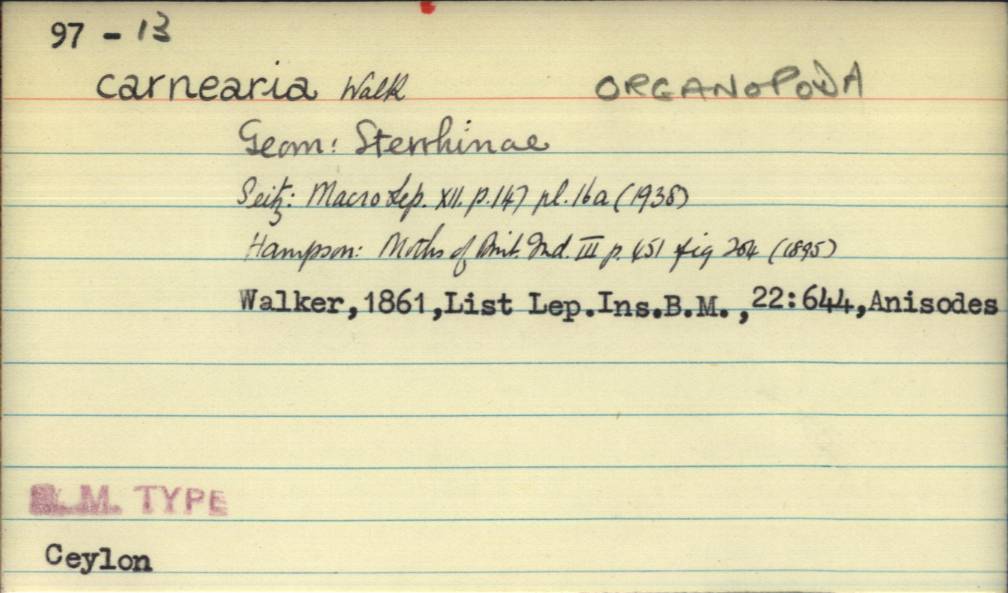 97 - 13
carnearia Walk ORGANOPODA
Geom: Sterrhinae
Seitz: Macro Lep. XII. p.147 pl.16a (1938)
Hampson: Moths of Brit. Ind. III p. 451 fig 204 (1895)
Walker,1861,List Lep.Ins.B.M.,22:644,Anisodes
B.M. TYPE
Ceylon